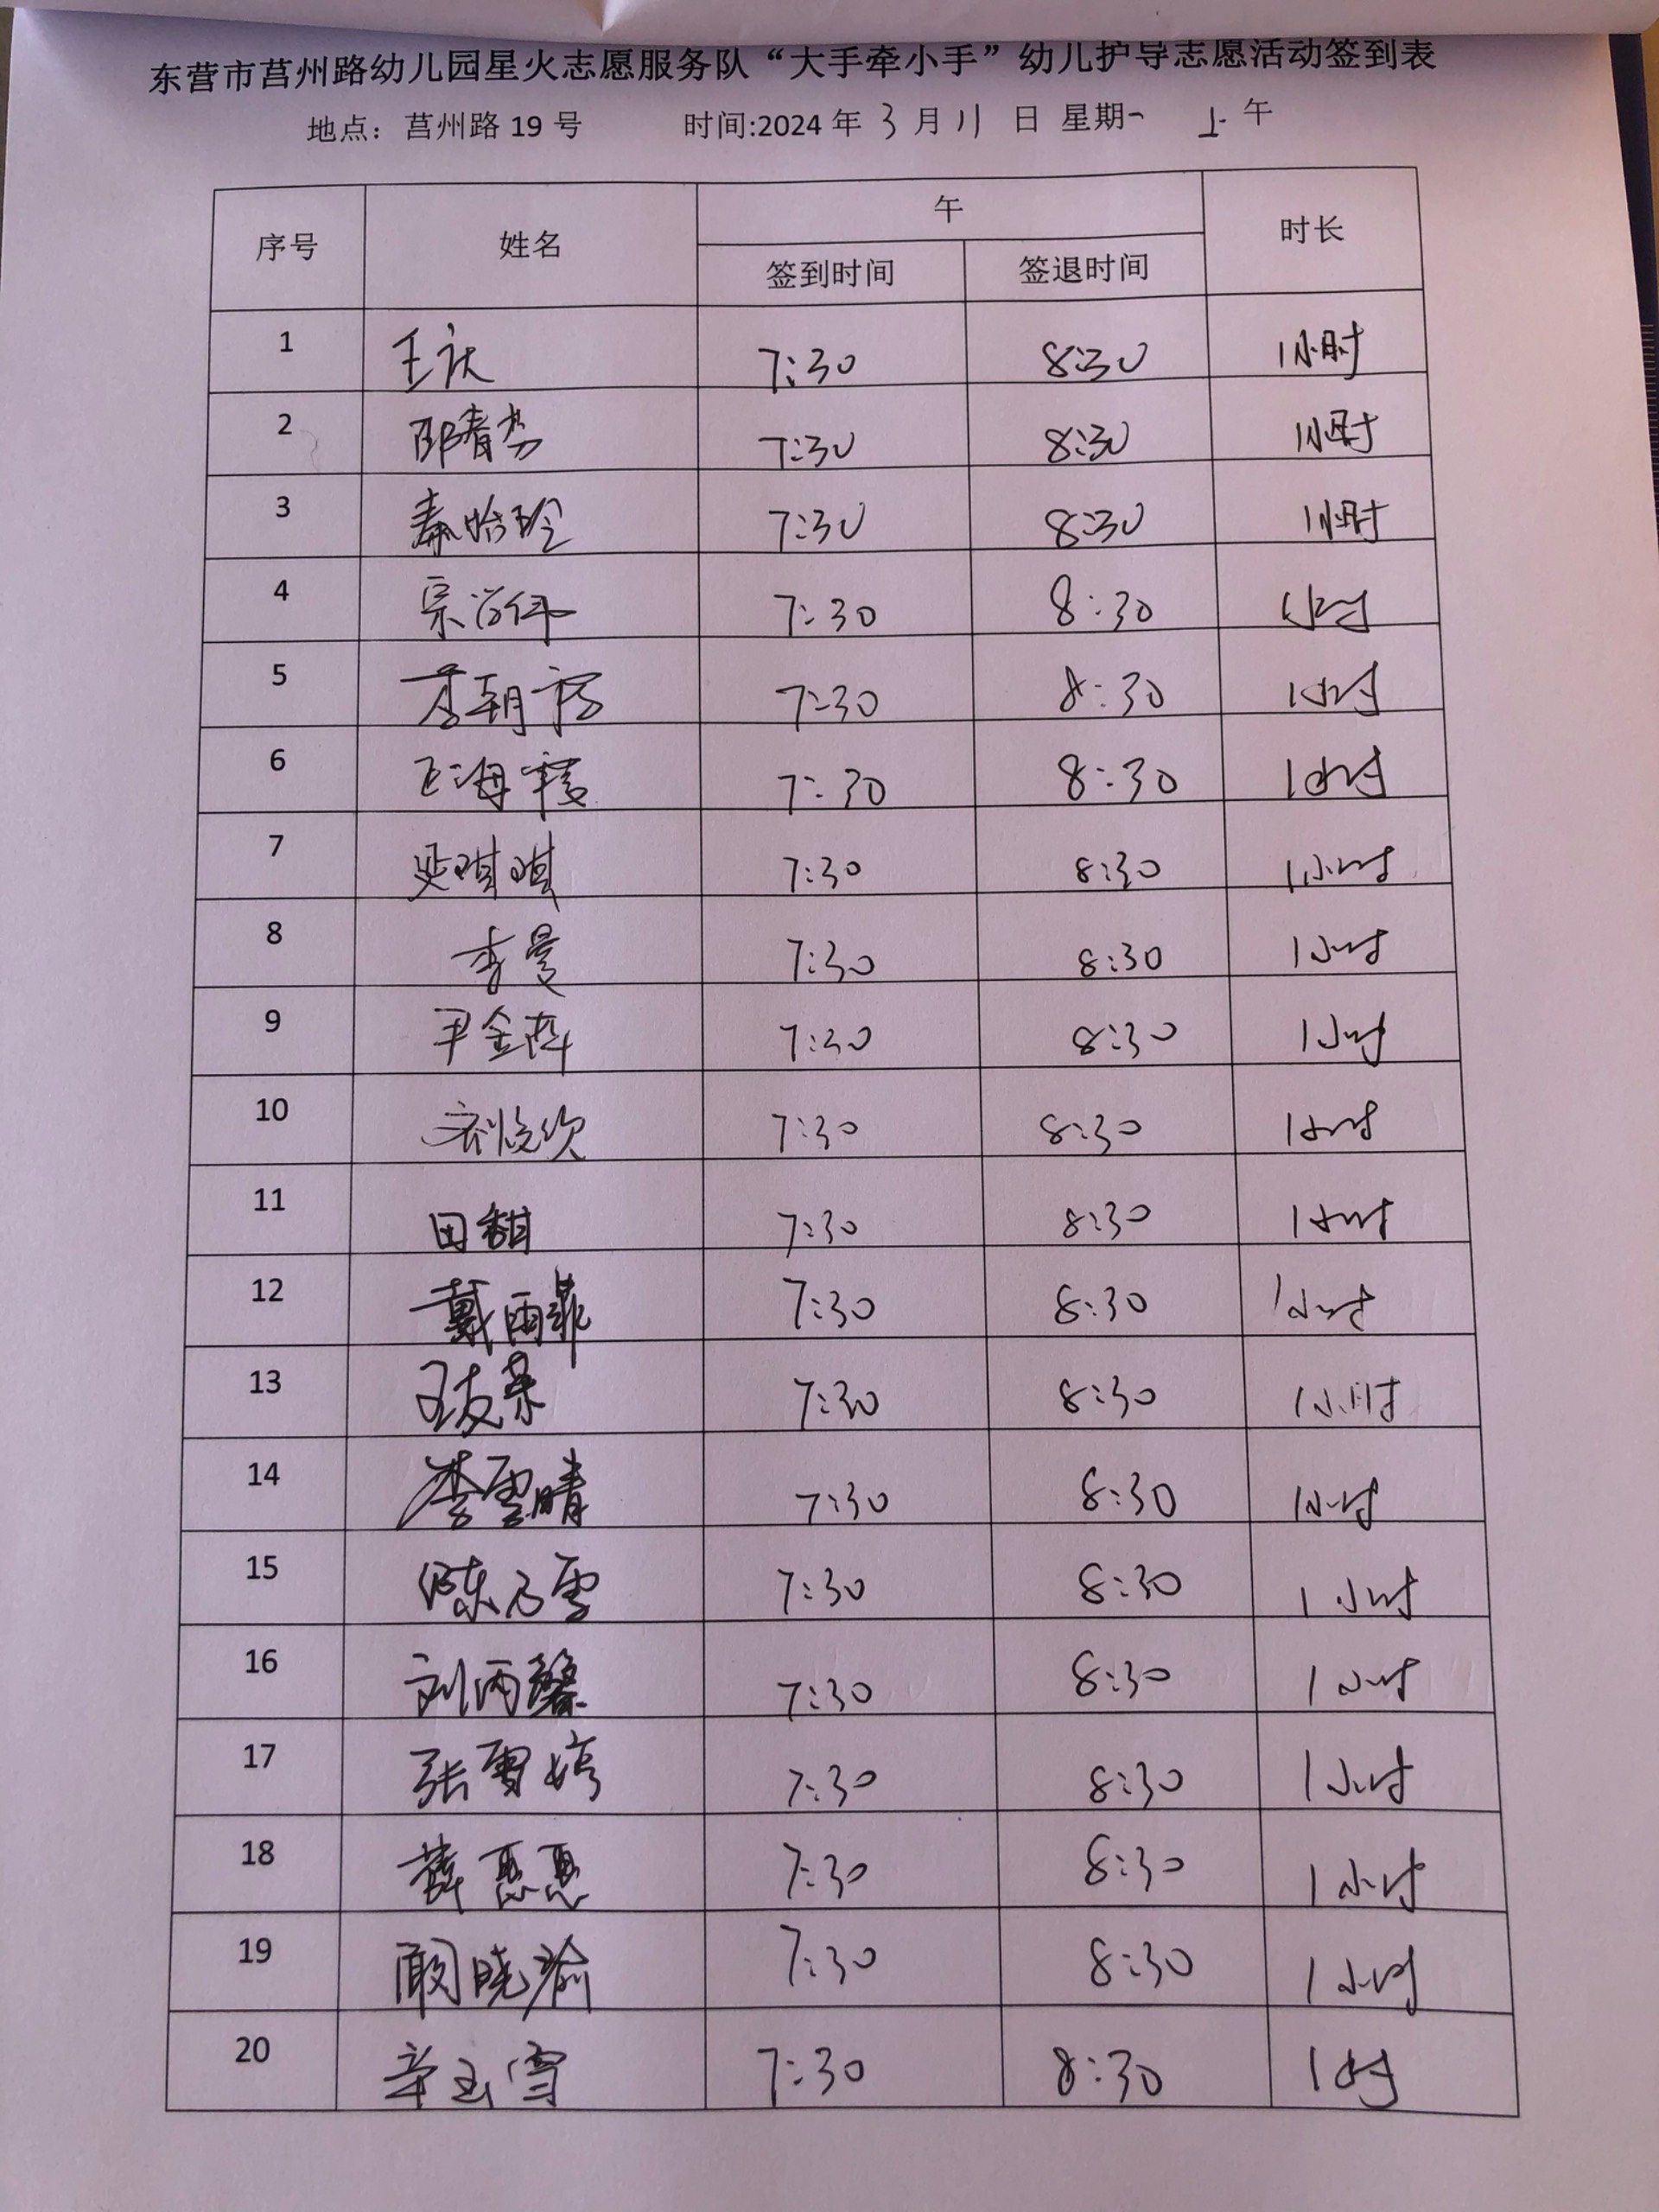 东营市莒州路幼儿园星火志愿服务队“大手牵小手”幼儿护导志愿活动签到表
地点：莒州路 19 号 时间:2024 年 3 月 11 日 星期一 上午
序号 姓名 午 时长
签到时间 签退时间
1 王庆 7:30 8:30 1小时
2 邵青 7:30 8:30 1小时
3 秦怡玲 7:30 8:30 1小时
4 宗 7:30 8:30 1小时
5 李朝 7:30 8:30 1小时
6 王海 7:30 8:30 1小时
7 琪琪 7:30 8:30 1小时
8 李曼 7:30 8:30 1小时
9 尹金萍 7:30 8:30 1小时
10 刘欣 7:30 8:30 1小时
11 田甜 7:30 8:30 1小时
12 戴雨菲 7:30 8:30 1小时
13 王友荣 7:30 8:30 1小时
14 李雪晴 7:30 8:30 1小时
15 陈乃雪 7:30 8:30 1小时
16 刘丙馨 7:30 8:30 1小时
17 张雪婷 7:30 8:30 1小时
18 薛惠惠 7:30 8:30 1小时
19 阚晓瑜 7:30 8:30 1小时
20 辛玉雪 7:30 8:30 1小时